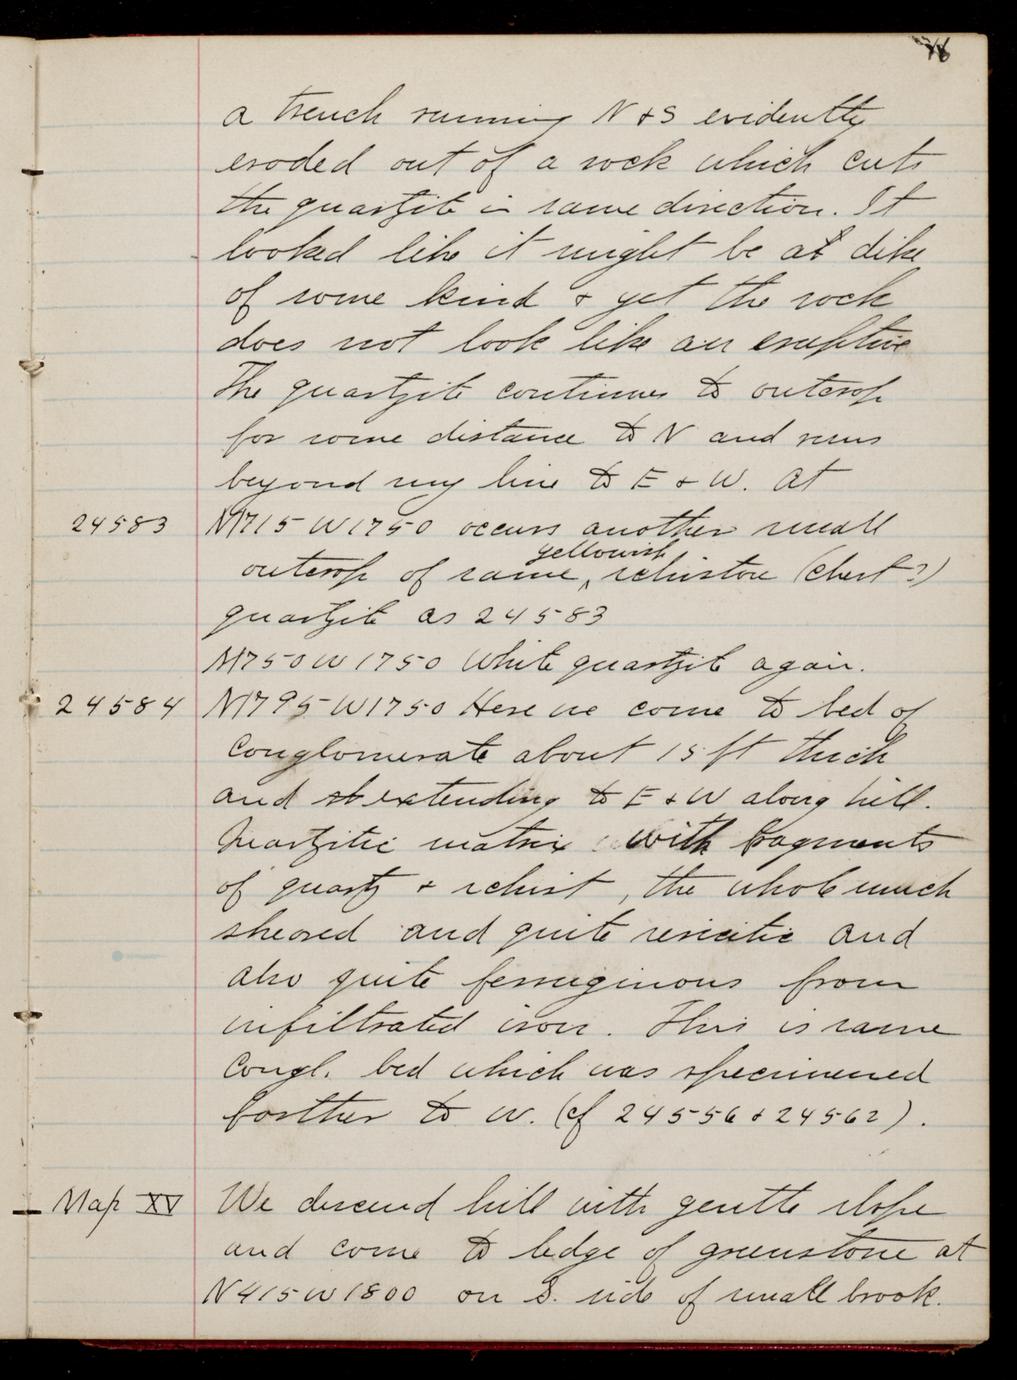 76
a trench running N + S evidently
eroded out of a rock which cuts
the quartzite in same direction. It
looked like it might be a dike
of some kind + yet the rock
does not look like an eruptive
The quartzite continues to outcrop
for some distance to N and runs
beyond my line to E + W. At
24583 N1715 W1750 occurs another small
outcrop of same yellowish schistose (chert?)
quartzite as 24583
N1750 W1750 White quartzite again.
24584 N1795 W1750 Here we come to bed of
conglomerate about 15 ft thick
and extending to E + W along hill.
Quartzitic matrix with fragments
of quartz + schist, the whole much
sheared and quite sericitic and
also quite ferruginous from
infiltrated iron. This is same
Congl. bed which was specimened
farther to W. (cf 24556 + 24562).
Map XV We descend hill with gentle slope
and come to ledge of greenstone at
N415 W1800 on S. side of small brook.